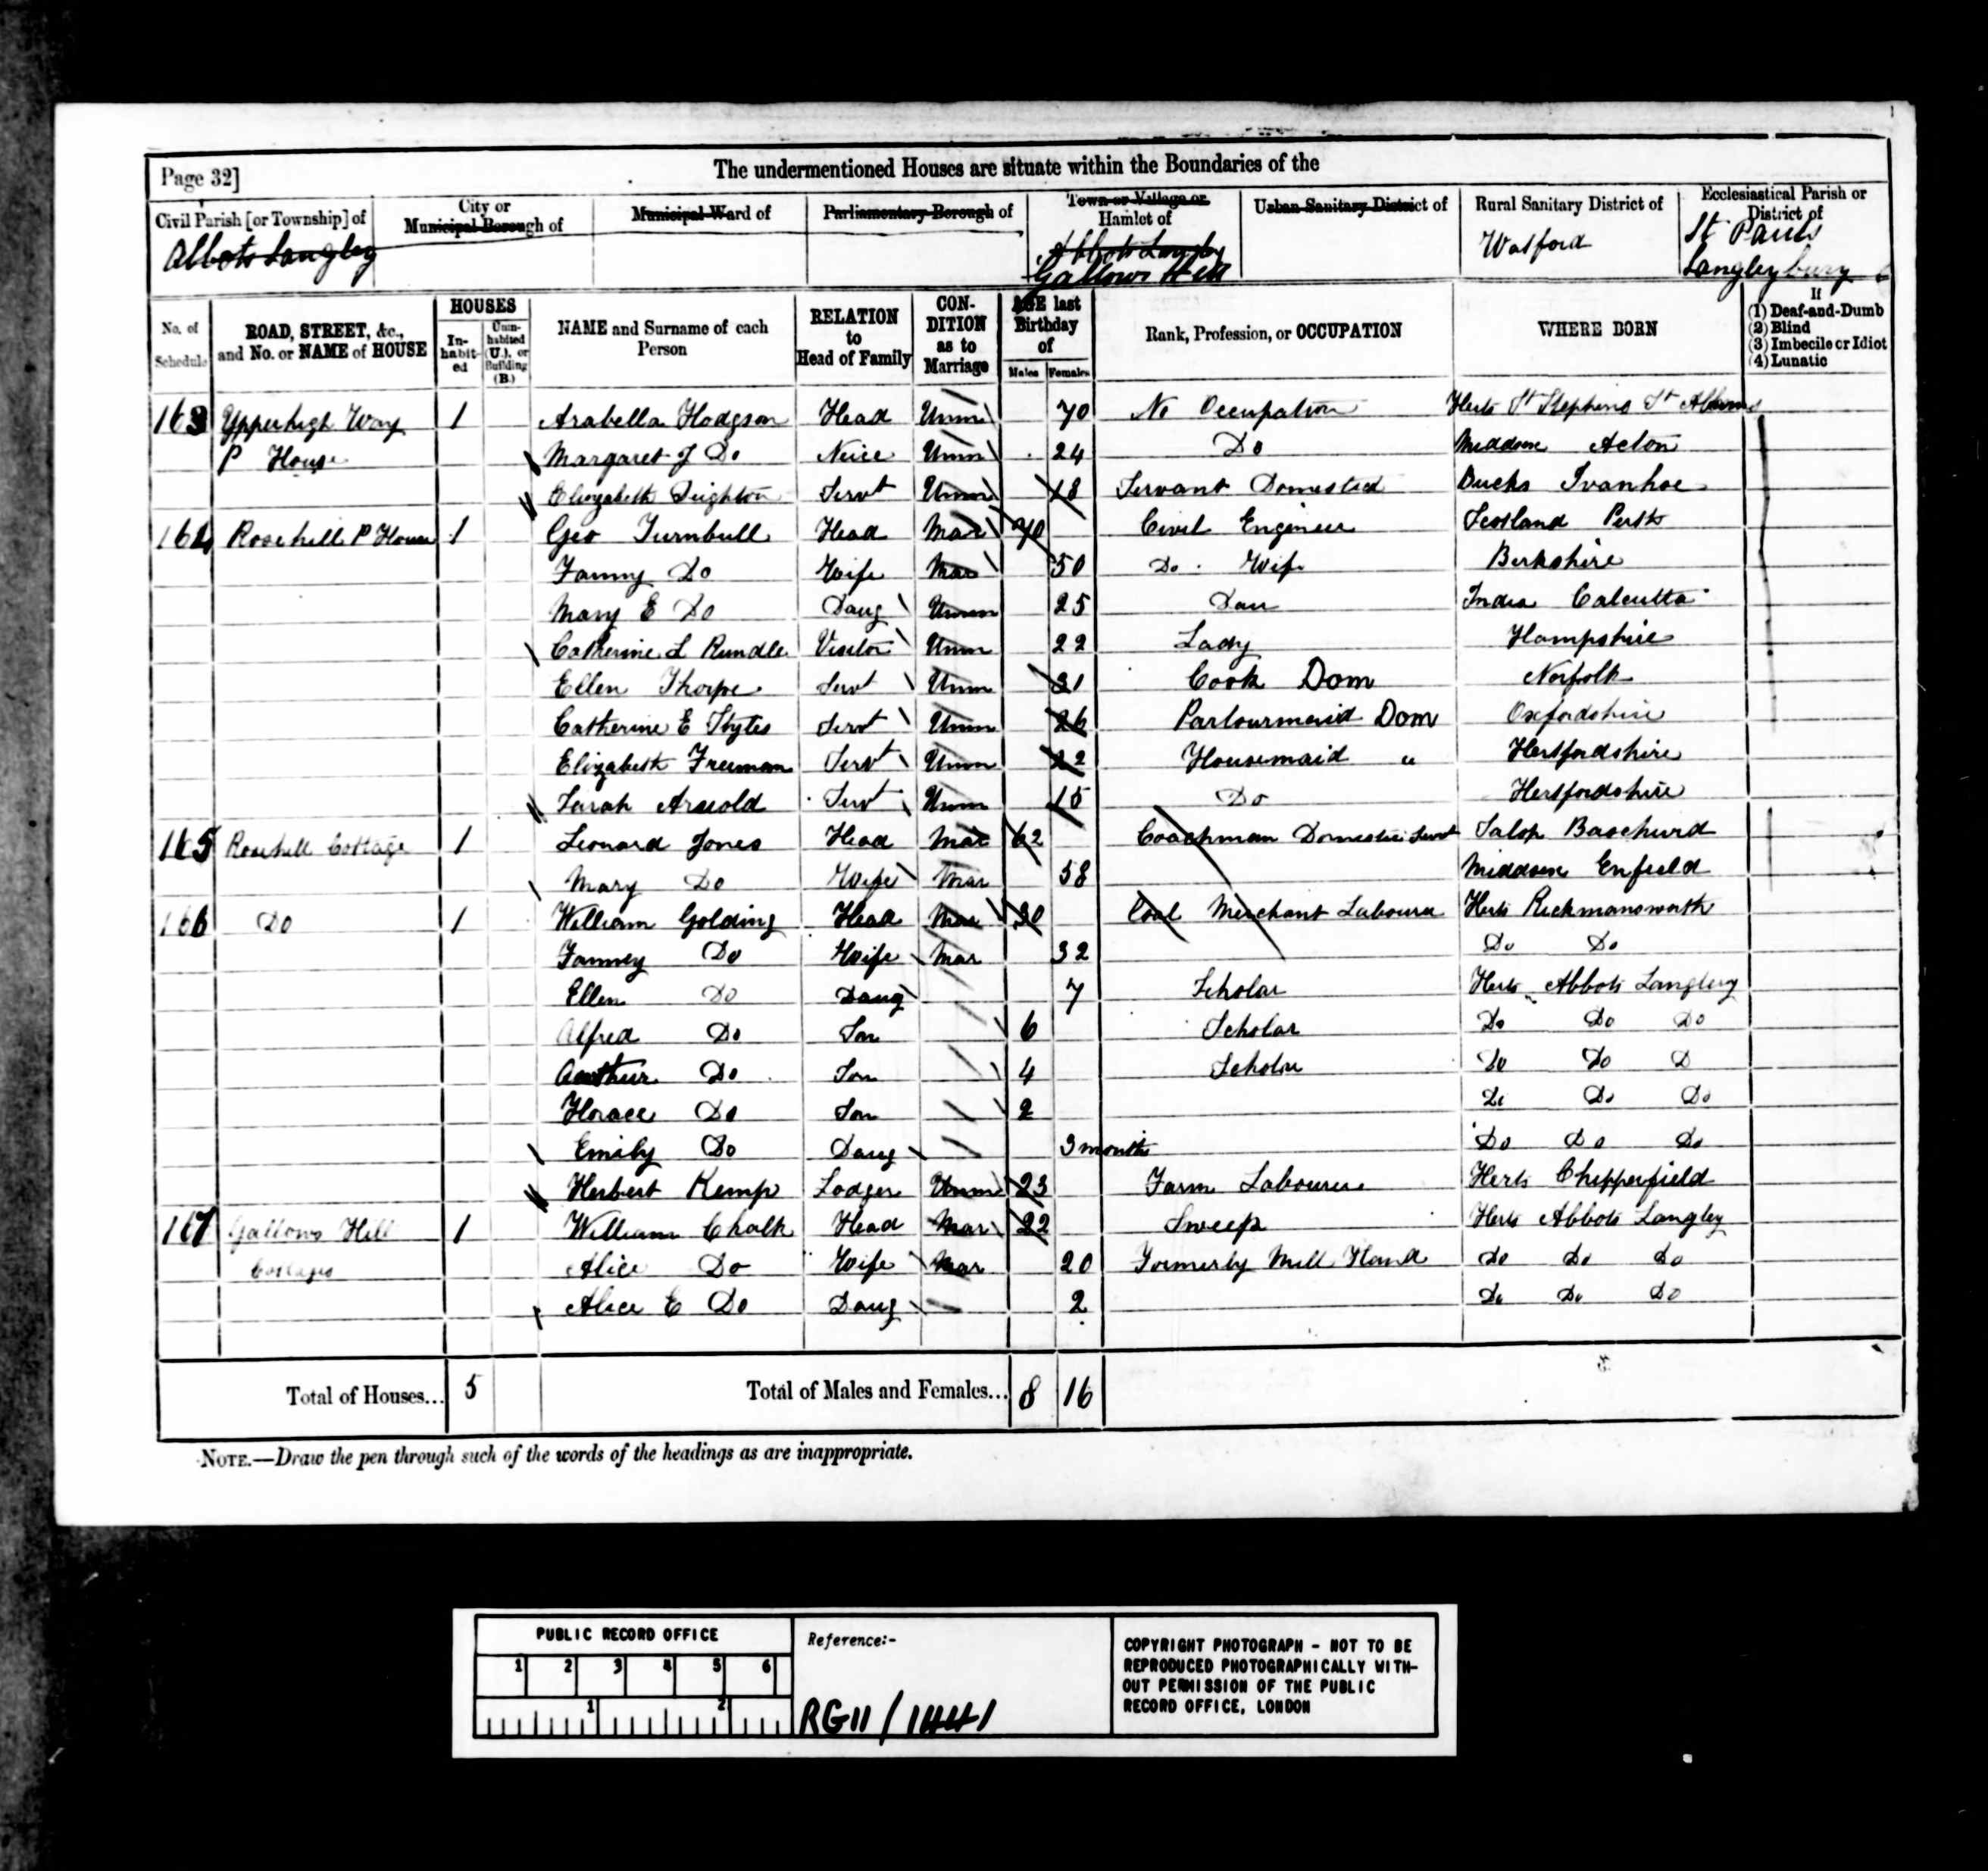 Page 32]
The undermentioned Houses are situate within the Boundaries of the
Civil Parish [or Township] of
City or Municipal Borough of
Municipal Ward of
Parliamentary Borough of
Town or Village or Hamlet of
Urban Sanitary District of
Rural Sanitary District of
Ecclesiastical Parish or District of
Abbots Langley
Abbots Langley
Gallows Hill
Watford
St Pauls
Langleybury
No. of Schedule
ROAD, STREET, &c., and No. or NAME of HOUSE
HOUSES
In-habit-ed
Unin-habited (U.), or Building (B.)
NAME and Surname of each Person
RELATION to Head of Family
CON-DITION as to Marriage
AGE last Birthday of
Males Females
Rank, Profession, or OCCUPATION
WHERE BORN
If
(1) Deaf-and-Dumb
(2) Blind
(3) Imbecile or Idiot
(4) Lunatic
163 Upperhigh Way 1 Arabella Hodgson Head Unm 70 No Occupation Herts St Stephens St Albans
P House Margaret J Do Neice Unm 24 Do Middsex Acton
Elizabeth Deighton Servt Unm 18 Servant Domestick Bucks Ivanhoe
164 Rosehill P House 1 Geo Turnbull Head Mar 70 Civil Engineer Scotland Perth
Fanny Do Wife Mar 50 Do Wife Berkshire
Mary E Do Daug Unm 25 Dau India Calcutta
Catherine L Rundle Visitor Unm 22 Lady Hampshire
Ellen Thorpe Servt Unm 31 Cook Dom Norfolk
Catherine E Servt Unm 26 Parlourmaid Dom Oxfordshire
Elizabeth Freeman Servt Unm 22 Housemaid " Hertfordshire
Sarah Arnold Servt Unm 15 Do Hertfordshire
165 Rosehill Cottage 1 Leonard Jones Head Mar 62 Coachman Domestic Servt Salop Baschurd
Mary Do Wife Mar 58 Middsex Enfield
166 Do 1 William Golding Head Mar 30 Coal Merchant Labourer Herts Rickmansworth
Fanney Do Wife Mar 32 Do Do
Ellen Do Daug 7 Scholar Herts Abbots Langley
Alfred Do Son 6 Scholar Do Do Do
Arthur Do Son 4 Scholar Do Do D
Horace Do Son 2 Do Do Do
Emily Do Daug 3 months Do Do Do
Herbert Kemp Lodger Unm 23 Farm Labourer Herts Chipperfield
167 Gallows Hill 1 William Chalk Head Mar 22 Sweep Herts Abbots Langley
Cottages Alice Do Wife Mar 20 Formerly Mill Hand Do Do Do
Alice E Do Daug 2 Do Do Do
Total of Houses... 5 Total of Males and Females... 8 16
NOTE.—Draw the pen through such of the words of the headings as are inappropriate.
PUBLIC RECORD OFFICE
1 2 3 4 5 6
1 2
Reference:-
RG11/1441
COPYRIGHT PHOTOGRAPH - NOT TO BE
REPRODUCED PHOTOGRAPHICALLY WITH-
OUT PERMISSION OF THE PUBLIC
RECORD OFFICE, LONDON